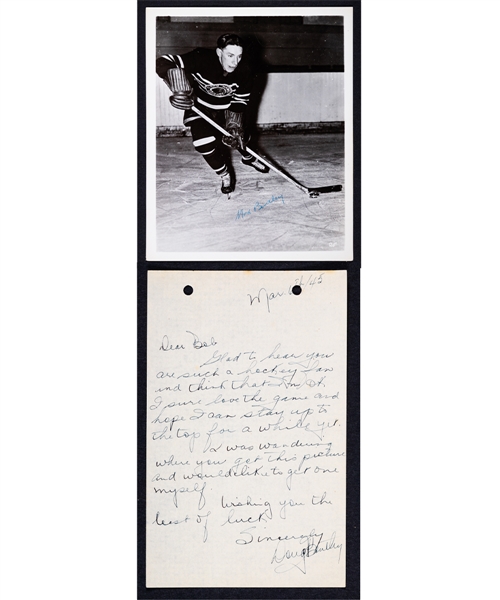 Doug Bentley
Mar 6th/45
Dear Bob
Glad to hear you
are such a hockey fan
and think that I'm ok.
I sure love the game and
hope I can stay up to
the top for a while yet.
I was wandering
where you got this picture
and would like to get one
myself.
Wishing you the
best of luck
Sincerely
Doug Bentley